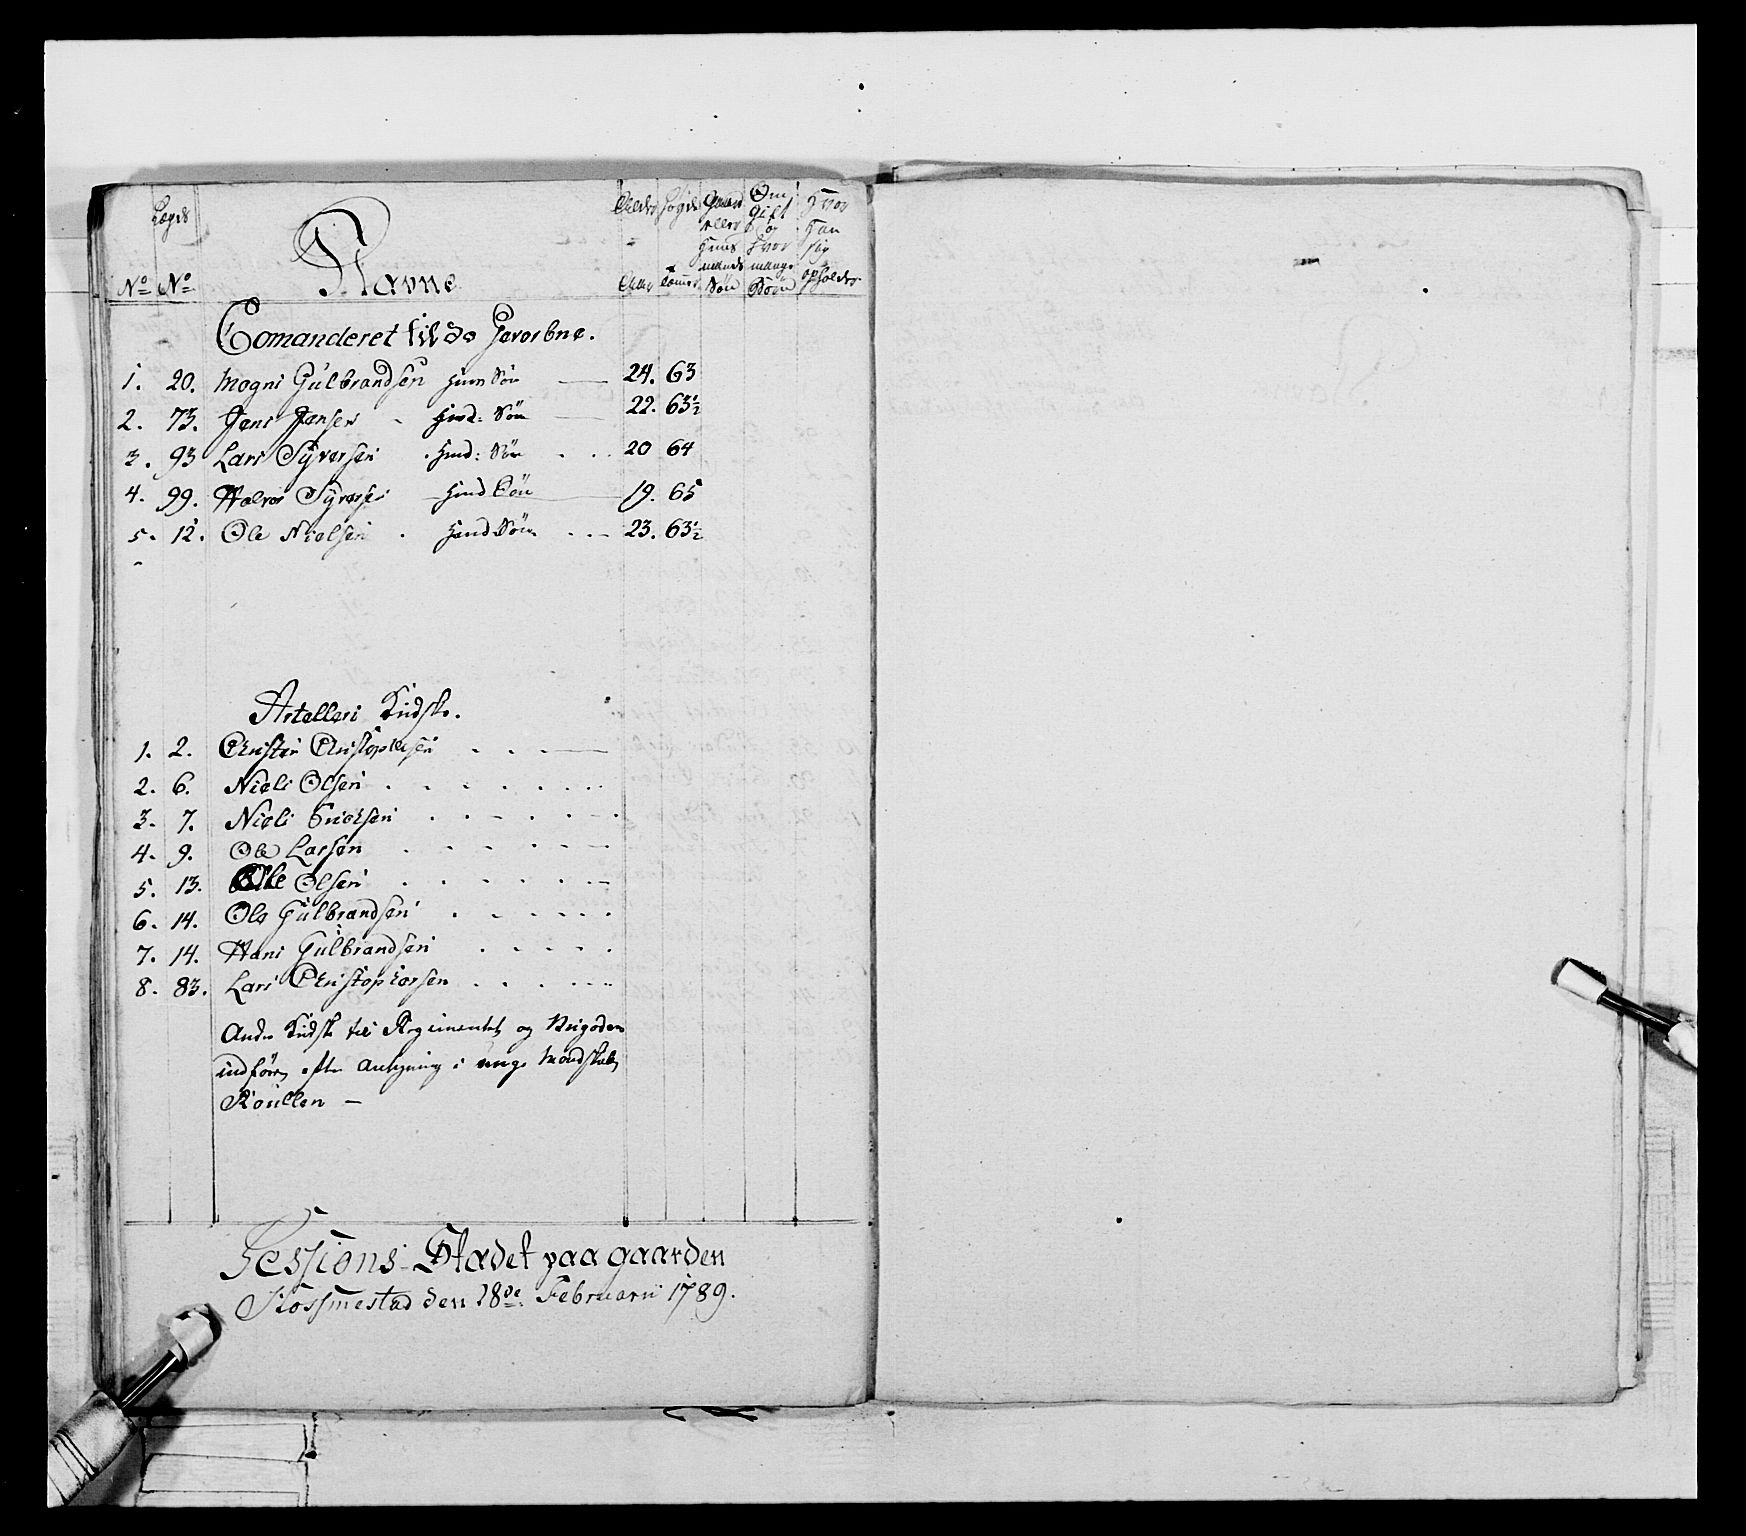 Lægds
No No Navne Alder Gaard eller Huus mands Søn Om gift og hvor mange Børn Hvor Han sig opholder
Comanderet til de Gevorbne.
1. 20. Mogns Gulbrandsen Huus Søn 24. 63
2. 73. Jens Jensen Hmd: Søn 22. 63½
3. 93 Lars Syversen Hmd: Søn 20 64
4. 99. Halvor Syversen Hmd Søn 19. 65
5. 12. Ole Nielsen Hmd Søn 23. 63½
Artelleri Kudske.
1. 2. Christen Christophersen
2. 6. Niels Olsen
3. 7. Niels Erichsen
4. 9. Ole Larsen
5. 13. Ole Olsen
6. 14. Ole Gulbrandsen
7. 14. Hans Gulbrandsen
8. 83. Lars Christophersen
Andre Kudske til Regimentet og Brigaden
indføres efter antegning i unge Mandskabs
Roullen —
Sessions-Stadet paa gaarden
den 28de Februarii 1789.